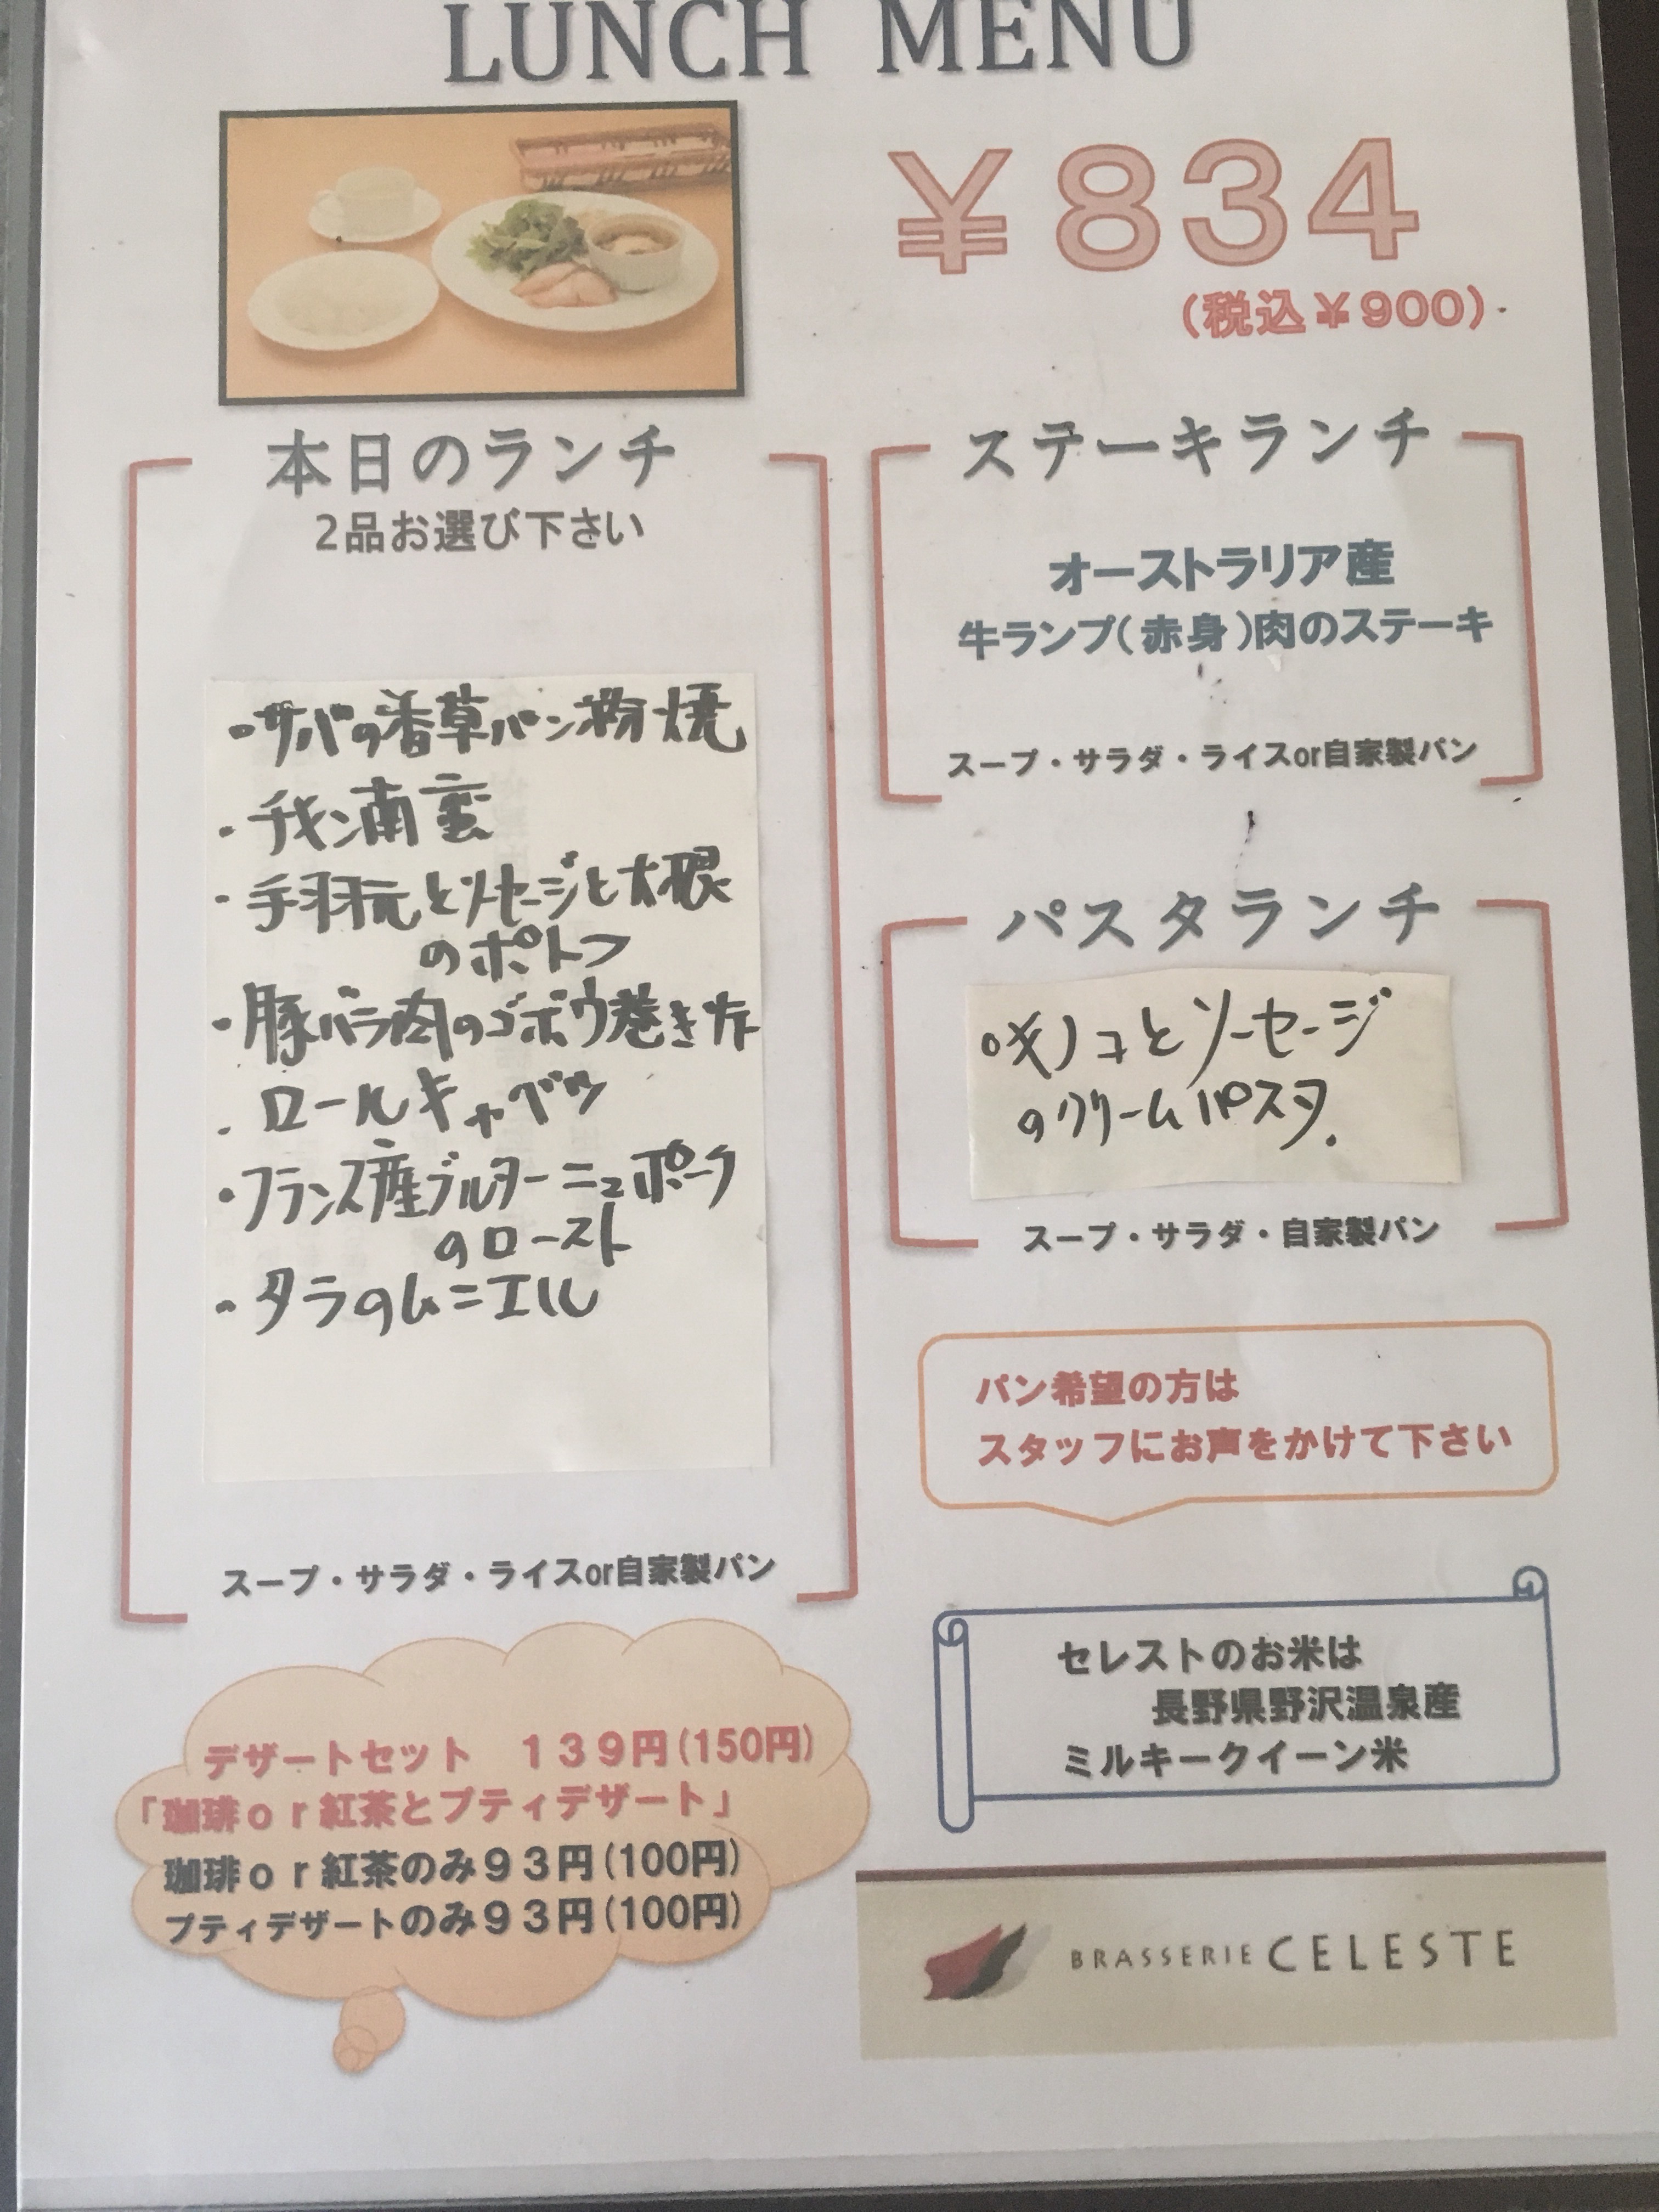 LUNCH MENU
￥834
(税込￥900)
本日のランチ
2品お選び下さい
・サバの香草パン粉焼
・チキン南蛮
・手羽元とソーセージと大根
のポトフ
・豚バラ肉のゴボウ巻き
・ロールキャベツ
・フランス産ブルターニュポーク
のロースト
・タラのムニエル
スープ・サラダ・ライスor自家製パン
ステーキランチ
オーストラリア産
牛ランプ(赤身)肉のステーキ
スープ・サラダ・ライスor自家製パン
パスタランチ
・キノコとソーセージ
のクリームパスタ.
スープ・サラダ・自家製パン
パン希望の方は
スタッフにお声をかけて下さい
セレストのお米は
長野県野沢温泉産
ミルキークイーン米
デザートセット　139円(150円)
「珈琲or紅茶とプティデザート」
珈琲or紅茶のみ93円(100円)
プティデザートのみ93円(100円)
BRASSERIE CELESTE